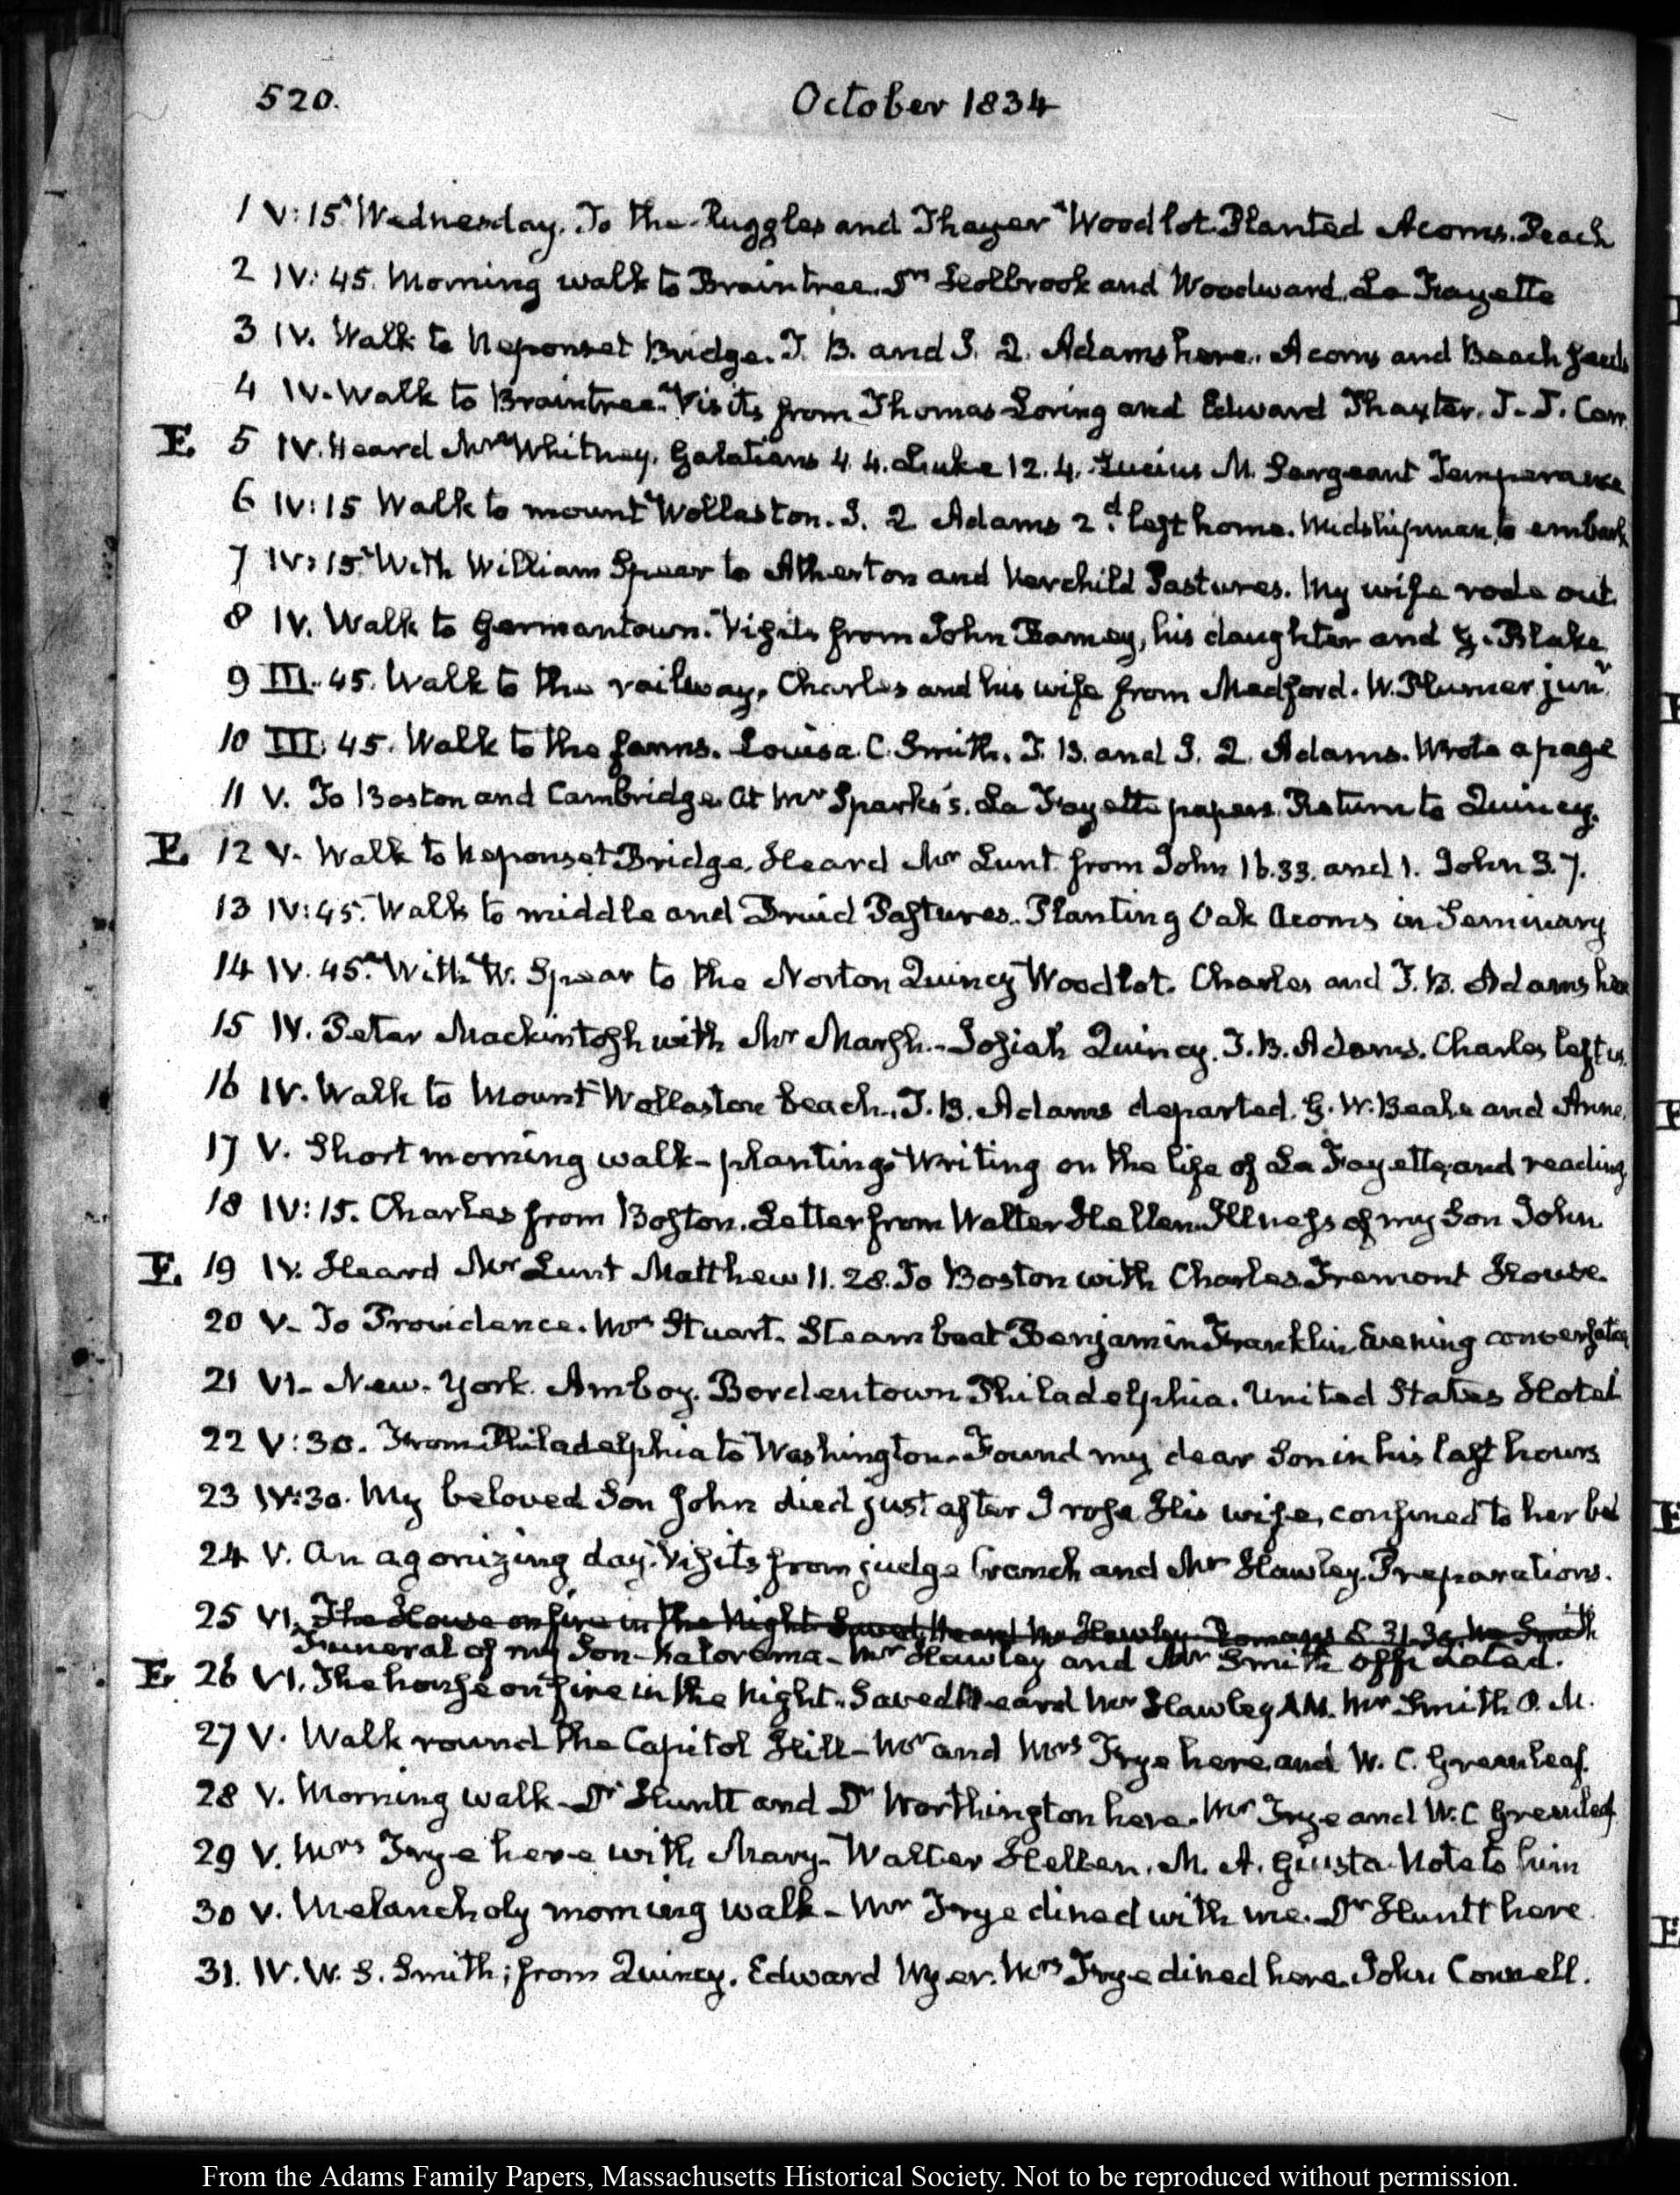 520.
October 1834
1 V:15. Wednesday. To the Ruggles and Thayer Woodlot. Planted Acorns. Peach
2 IV:45. Morning walk to Braintree. Drs Holbrook and Woodward. La Fayette
3 IV. Walk to Neponset Bridge. T. B. and I. Q. Adams here. Acorns and Beach
4 IV. Walk to Braintree. Visits from Thomas Loring and Edward Thaxter. J. J.
E. 5 IV. Heard Mr Whitney. Galatians 4. 4. Luke 12. 4. Lucius M. Sargeant Temperance
6 IV:15 Walk to mount Wollaston. I. Q Adams 2d. left home. Midshipman, to embark
7 IV:15. With William Spear to Atherton and Verchild Pastures. My wife rode out
8 IV. Walk to Germantown. Visits from John Bamey, his daughter and G. Blake
9 III.45. Walk to the railway. Charles and his wife from Medford. W. Plumer junr
10 III:45. Walk to the farms. Louisa C. Smith. T. B. and I. Q. Adams. Wrote a page
11 V. To Boston and Cambridge. At Mr Sparks's. La Fayette papers. Return to Quincy.
E. 12 V. Walk to Neponset Bridge. Heard Mr Lunt from John 16.33. and 1. John 3.7.
13 IV:45. Walk to middle and Druid Pastures. Planting Oak Acorns in Seminary
14 IV.45. With W. Spear to the Norton Quincy Woodlot. Charles and T. B. Adams here
15 IV. Peter Mackintosh with Mr Marsh. Josiah Quincy. T. B. Adams. Charles left us.
16 IV. Walk to Mount Wollaston beach. T. B. Adams departed. G. W. Beale and Anne.
17 V. Short morning walk - planting. Writing on the life of La Fayette, and reading
18 IV:15. Charles from Boston. Letter from Walter Hellen. Illness of my Son John
E. 19 IV. Heard Mr Lunt Matthew 11. 28. To Boston with Charles. Tremont House.
20 V. To Providence. Mrs Stuart. Steam boat Benjamin Franklin. Evening conversation
21 VI. New-York. Amboy. Bordentown Philadelphia. United States Hotel
22 V:30. From Philadelphia to Washington. Found my dear Son in his last hours
23 IV:30. My beloved Son John died just after I rose His wife, confined to her bed
24 V. An agonizing day. Visits from judge Cranch and Mr Hawley. Preparations.
25 VI. The House on fire in the Night. Saved. Heard Mr Hawley Romans 8. 31.32. Mr Smith
Funeral of my Son - Kalorama - Mr Hawley and Mr Smith officiated.
E. 26 VI. The house on fire in the Night. Saved. Heard Mr Hawley AM. Mr Smith P. M.
27 V. Walk round the Capitol Hill - Mr and Mrs Frye here, and W. C. Greenleaf.
28 V. Morning walk - Dr Huntt and Dr Worthington here. Mr Frye and W. C Greenleaf
29 V. Mrs Frye here with Mary. Walter Hellen. M. A. Giusta. Note to him
30 V. Melancholy morning walk - Mr Frye dined with me. Dr Huntt here.
31. IV. W. S. Smith; from Quincy. Edward Wyer. Mrs Frye dined here. John Connell.
From the Adams Family Papers, Massachusetts Historical Society. Not to be reproduced without permission.